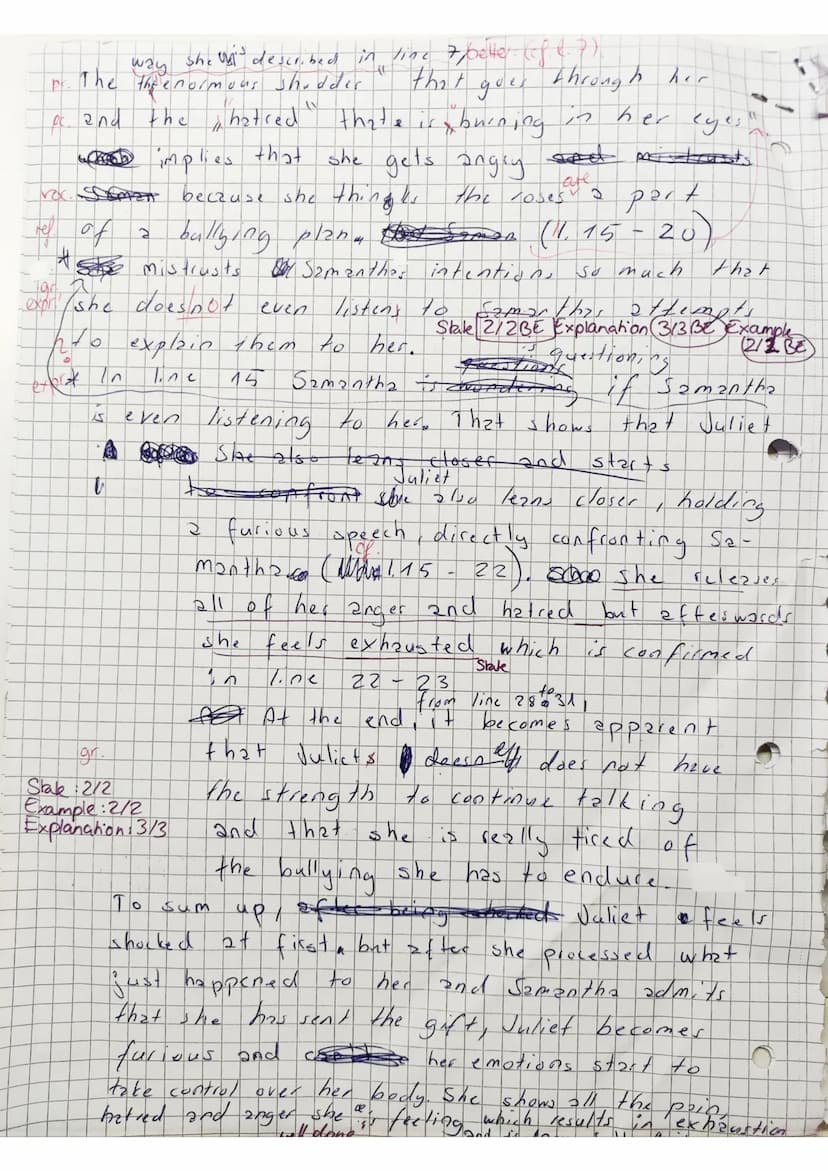 way she is described in line 7, better: (cf. l. 7)
pc. The "enormous shudder" that goes through her
pc. and the "hatred" that is "burning in her eyes"
implies that she gets angry and mistrusts
voc. because she thinks the roses are a part
ref of a bullying plan. (ll. 15-20)
* mistrusts Samanthas intentions so much that
gr.
expr. she does not even listens to Samanthas attempts
State 2/2BE Explanation 3/3BE Example
to explain them to her. 2/2 BE
is questioning
expr. * In line 15 Samantha is wondering if Samantha
is even listening to her. That shows that Juliet
She also leans closer and starts
Juliet
to confront she also leans closer, holding
a furious speech, directly confronting Sa-
cf.
mantha (l. 15-22). she releases
all of her anger and hatred but afterwards
she feels exhausted which is confirmed
State
in line 22-23
from line 28 to 31,
At the end, it becomes apparent
gr. that Juliets does not have
State: 2/2 the strength to continue talking
Example: 2/2
Explanation: 3/3 and that she is really tired of
the bullying she has to endure.
To sum up, after being shocked Juliet feels
shocked at first, but after she processed what
just happened to her and Samantha admits
that she has sent the gift, Juliet becomes
furious and her emotions start to
take control over her body. She shows all the pain,
hatred and anger she is feeling, which results in exhaustion
well done